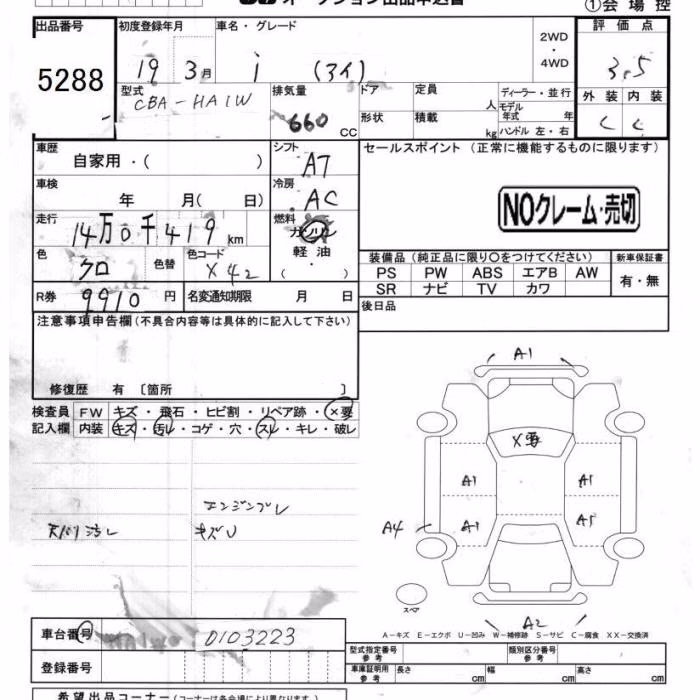 オークション出品申込書
①会場控
出品番号 初度登録年月 車名・グレード 2WD・4WD 評価点
5288 19 3月 i (アイ) 3.5
型式 CBA-HA1W 排気量 660 CC ドア 定員 人 ディーラー・並行 外装 内装
形状 積載 kg モデル年式 年 C C
ハンドル 左・右
車歴 自家用・( ) シフト AT セールスポイント (正常に機能するものに限ります)
車検 年 月( 日) 冷房 AC
NOクレーム・売切
走行 14万0千419km 燃料 ガソリン
軽油・( )
色 クロ 色替 色コード X42 装備品 (純正品に限り〇をつけてください) 新車保証書
PS PW ABS エアB AW 有・無
SR ナビ TV カワ
R券 9910円 名変通知期限 月 日 後日品
注意事項申告欄(不具合内容等は具体的に記入して下さい)
修復歴 有 〔箇所 〕
検査員 FW キズ・飛石・ヒビ割・リペア跡・×要
記入欄 内装 キズ・汚レ・コゲ・穴・スレ・キレ・破レ
A1
X要
A1 A1
A4 A1 A1
エンジンブレ
天バリ汚レ キズU
スペア
A2
A-キズ E-エクボ U-凹み W-補修跡 S-サビ C-腐食 XX-交換済
車台番号 HA1W 0103223
型式指定番号 参考 類別区分番号 参考
登録番号 車庫証明用 参考 長さ cm 幅 cm 高さ cm
希望出品コーナー(コーナーは各会場により異なります)